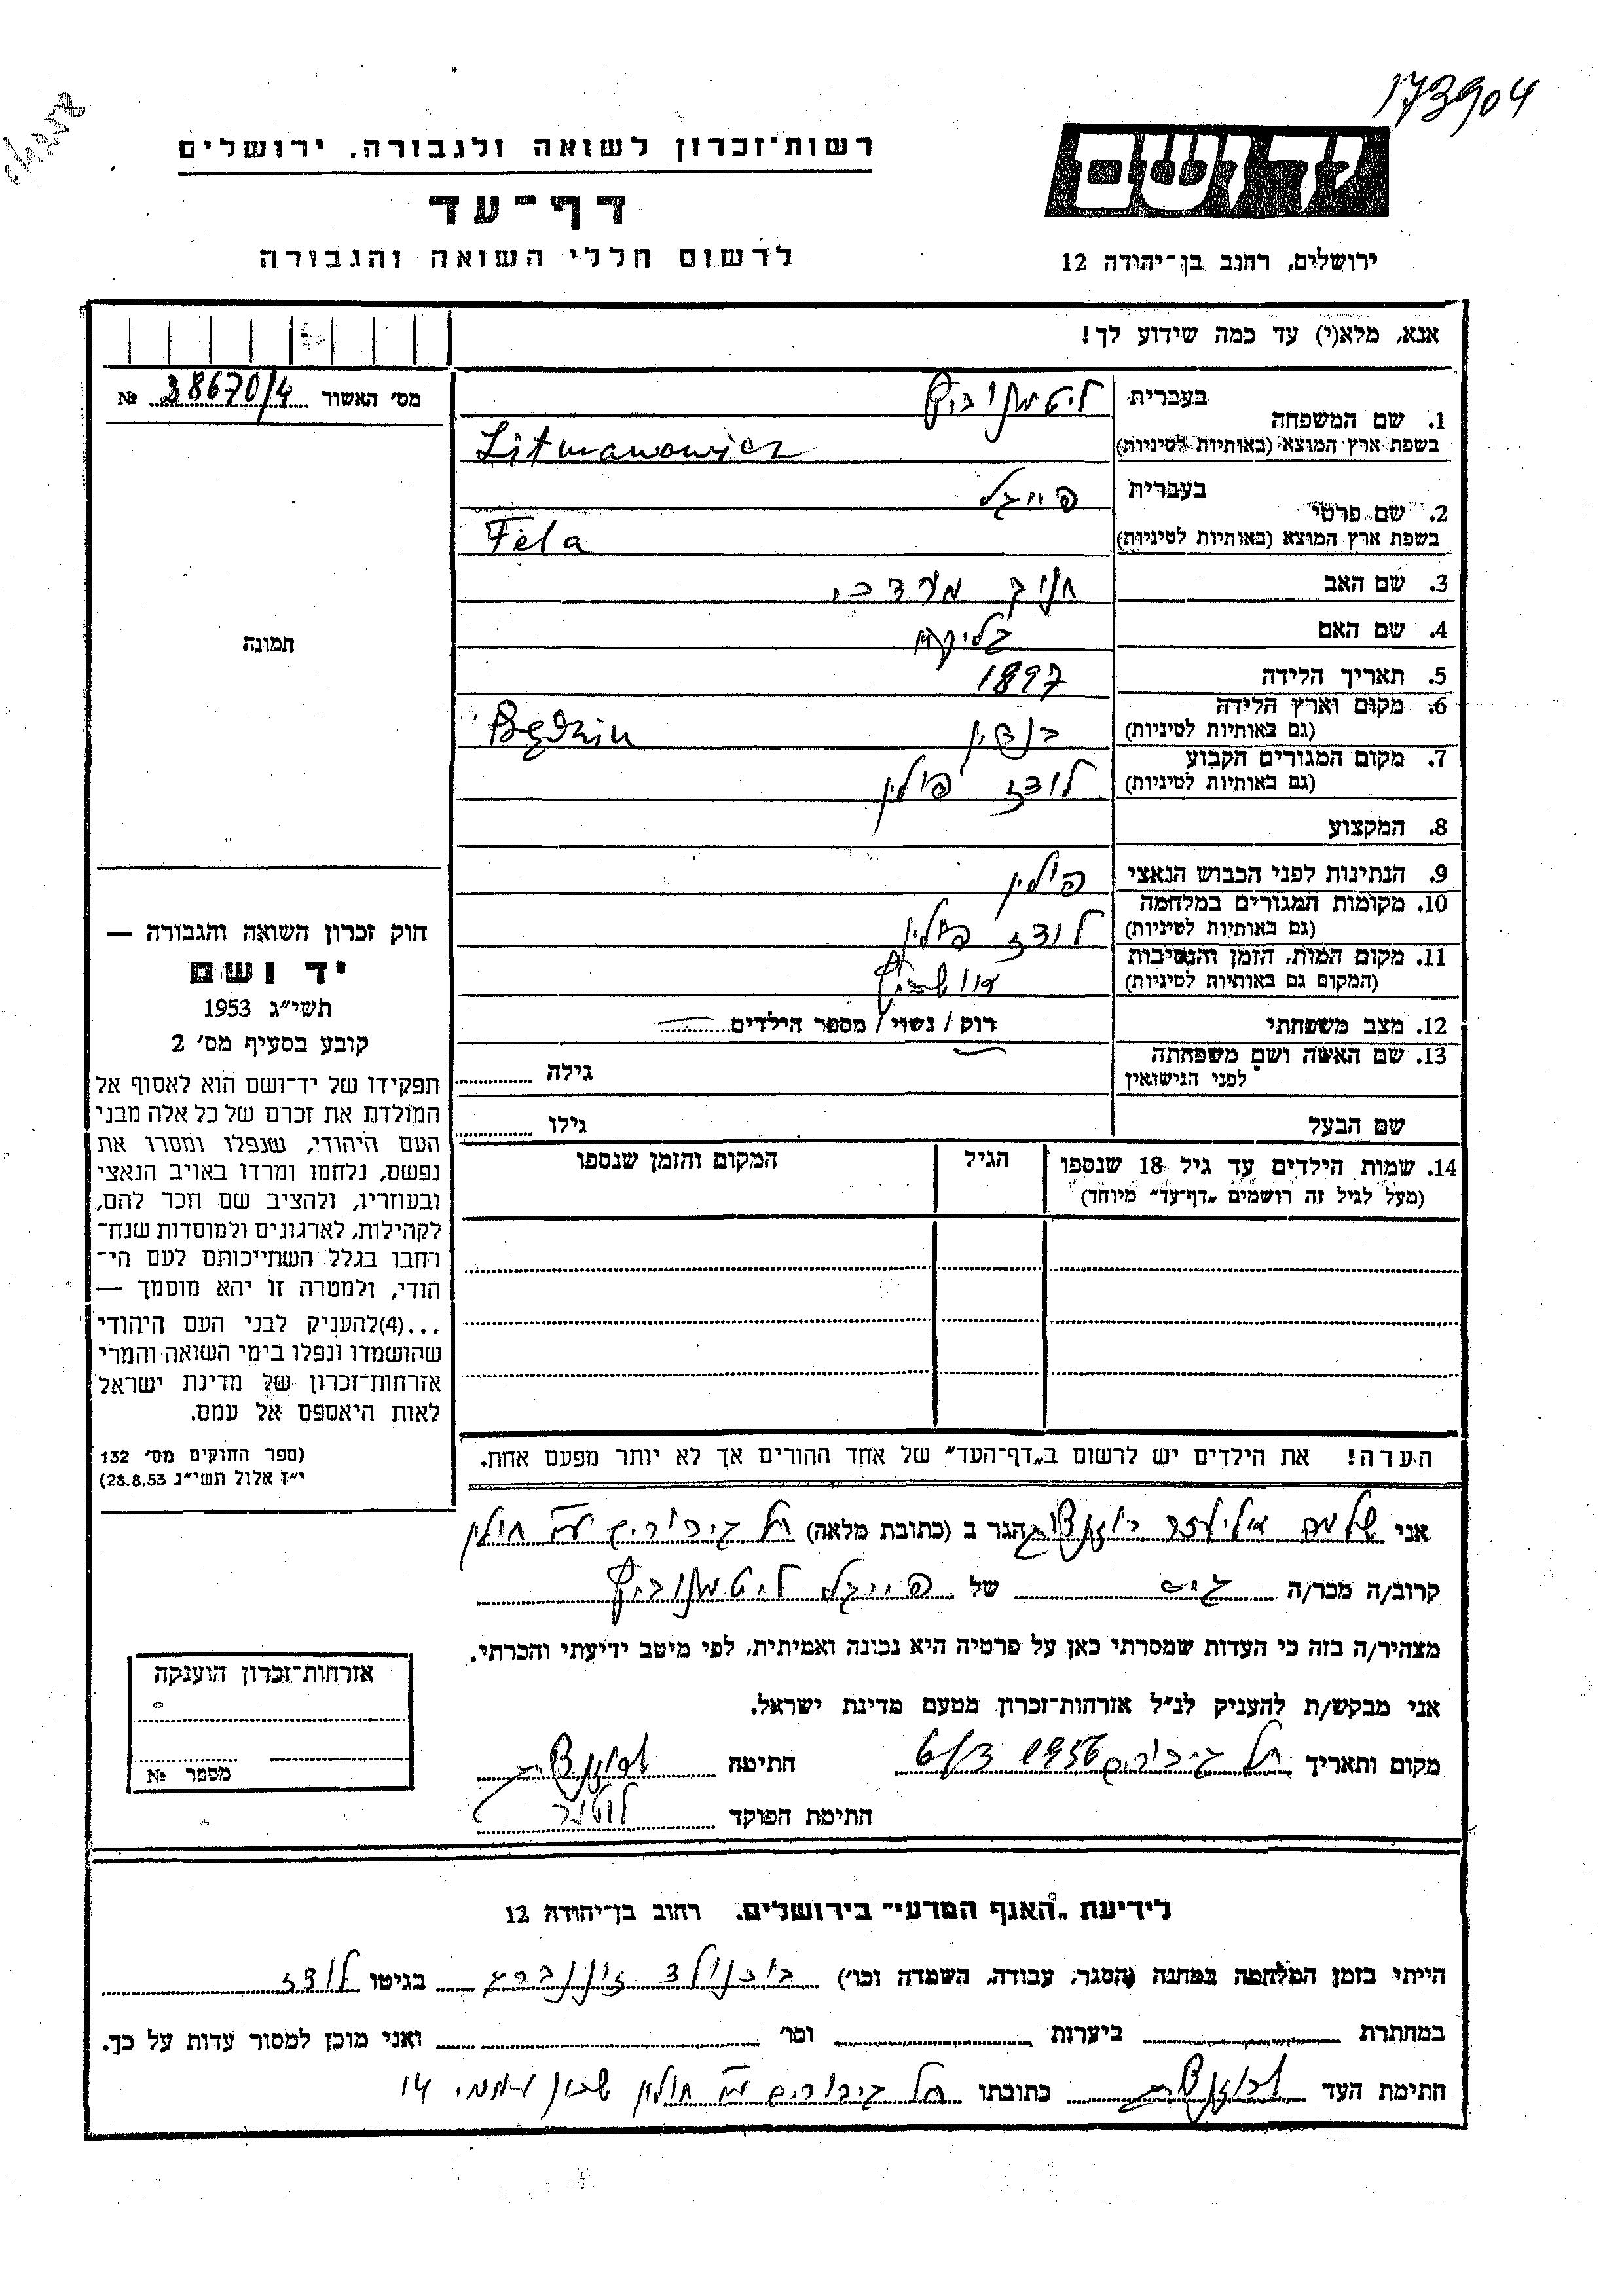 173904
יד ושם
רשות־זכרון לשואה ולגבורה, ירושלים
דף־עד
לרשום חללי השואה והגבורה
ירושלים, רחוב בן־יהודה 12
אנא, מלא(י) עד כמה שידוע לך!
מס׳ האשור 38670/4 №
תמונה
1. שם המשפחה בעברית ליטמנוביץ
בשפת ארץ המוצא (באותיות לטיניות) Litmanowicz
2. שם פרטי בעברית פייגלא
בשפת ארץ המוצא (באותיות לטיניות) Fela
3. שם האב חנוך מרדכי
4. שם האם
5. תאריך הלידה 1897
6. מקום וארץ הלידה בנדין Będzin
(גם באותיות לטיניות)
7. מקום המגורים הקבוע לודז פולין
(גם באותיות לטיניות)
8. המקצוע
9. הנתינות לפני הכבוש הנאצי פולין
10. מקומות המגורים במלחמה לודז פולין
(גם באותיות לטיניות)
11. מקום המות, הזמן והנסיבות אושביץ
(המקום גם באותיות לטיניות)
12. מצב משפחתי רוק / נשוי / מספר הילדים
13. שם האשה ושם משפחתה גילה
לפני הנישואין
שם הבעל גילו
14. שמות הילדים עד גיל 18 שנספו הגיל המקום והזמן שנספו
(מעל לגיל זה רושמים „דף־עד״ מיוחד)
הערה! את הילדים יש לרשום ב„דף־העד״ של אחד ההורים אך לא יותר מפעם אחת.
חוק זכרון השואה והגבורה —
יד ושם
תשי״ג 1953
קובע בסעיף מס׳ 2
תפקידו של יד־ושם הוא לאסוף אל
המולדת את זכרם של כל אלה מבני
העם היהודי, שנפלו ומסרו את
נפשם, נלחמו ומרדו באויב הנאצי
ובעוזריו, ולהציב שם וזכר להם,
לקהילות, לארגונים ולמוסדות שנח־
רבו בגלל השתייכותם לעם הי־
הודי, ולמטרה זו יהא מוסמך —
...(4)להעניק לבני העם היהודי
שהושמדו ונפלו בימי השואה והמרי
אזרחות־זכרון של מדינת ישראל
לאות היאספם אל עמם.
(ספר החוקים מס׳ 132
י״ז אלול תשי״ג 28.8.53)
אני שלמה אליעזר הגר ב (כתובת מלאה) תל גיבורים חולין
קרוב/ה מכר/ה גיס של פייגלא ליטמנוביץ
מצהיר/ה בזה כי העדות שמסרתי כאן על פרטיה היא נכונה ואמיתית, לפי מיטב ידיעתי והכרתי.
אני מבקש/ת להעניק לנ״ל אזרחות־זכרון מטעם מדינת ישראל.
מקום ותאריך תל גיבורים 1956 6/3 חתימה
חתימת הפוקד
אזרחות־זכרון הוענקה
מספר №
לידיעת „האגף המדעי״ בירושלים, רחוב בן־יהודה 12
הייתי בזמן המלחמה במחנה (הסגר, עבודה, השמדה וכו׳) בוכנולד בגיטו לודז
במחתרת ביערות וכו׳ ואני מוכן למסור עדות על כך.
חתימת העד כתובתו תל גיבורים חולין 14